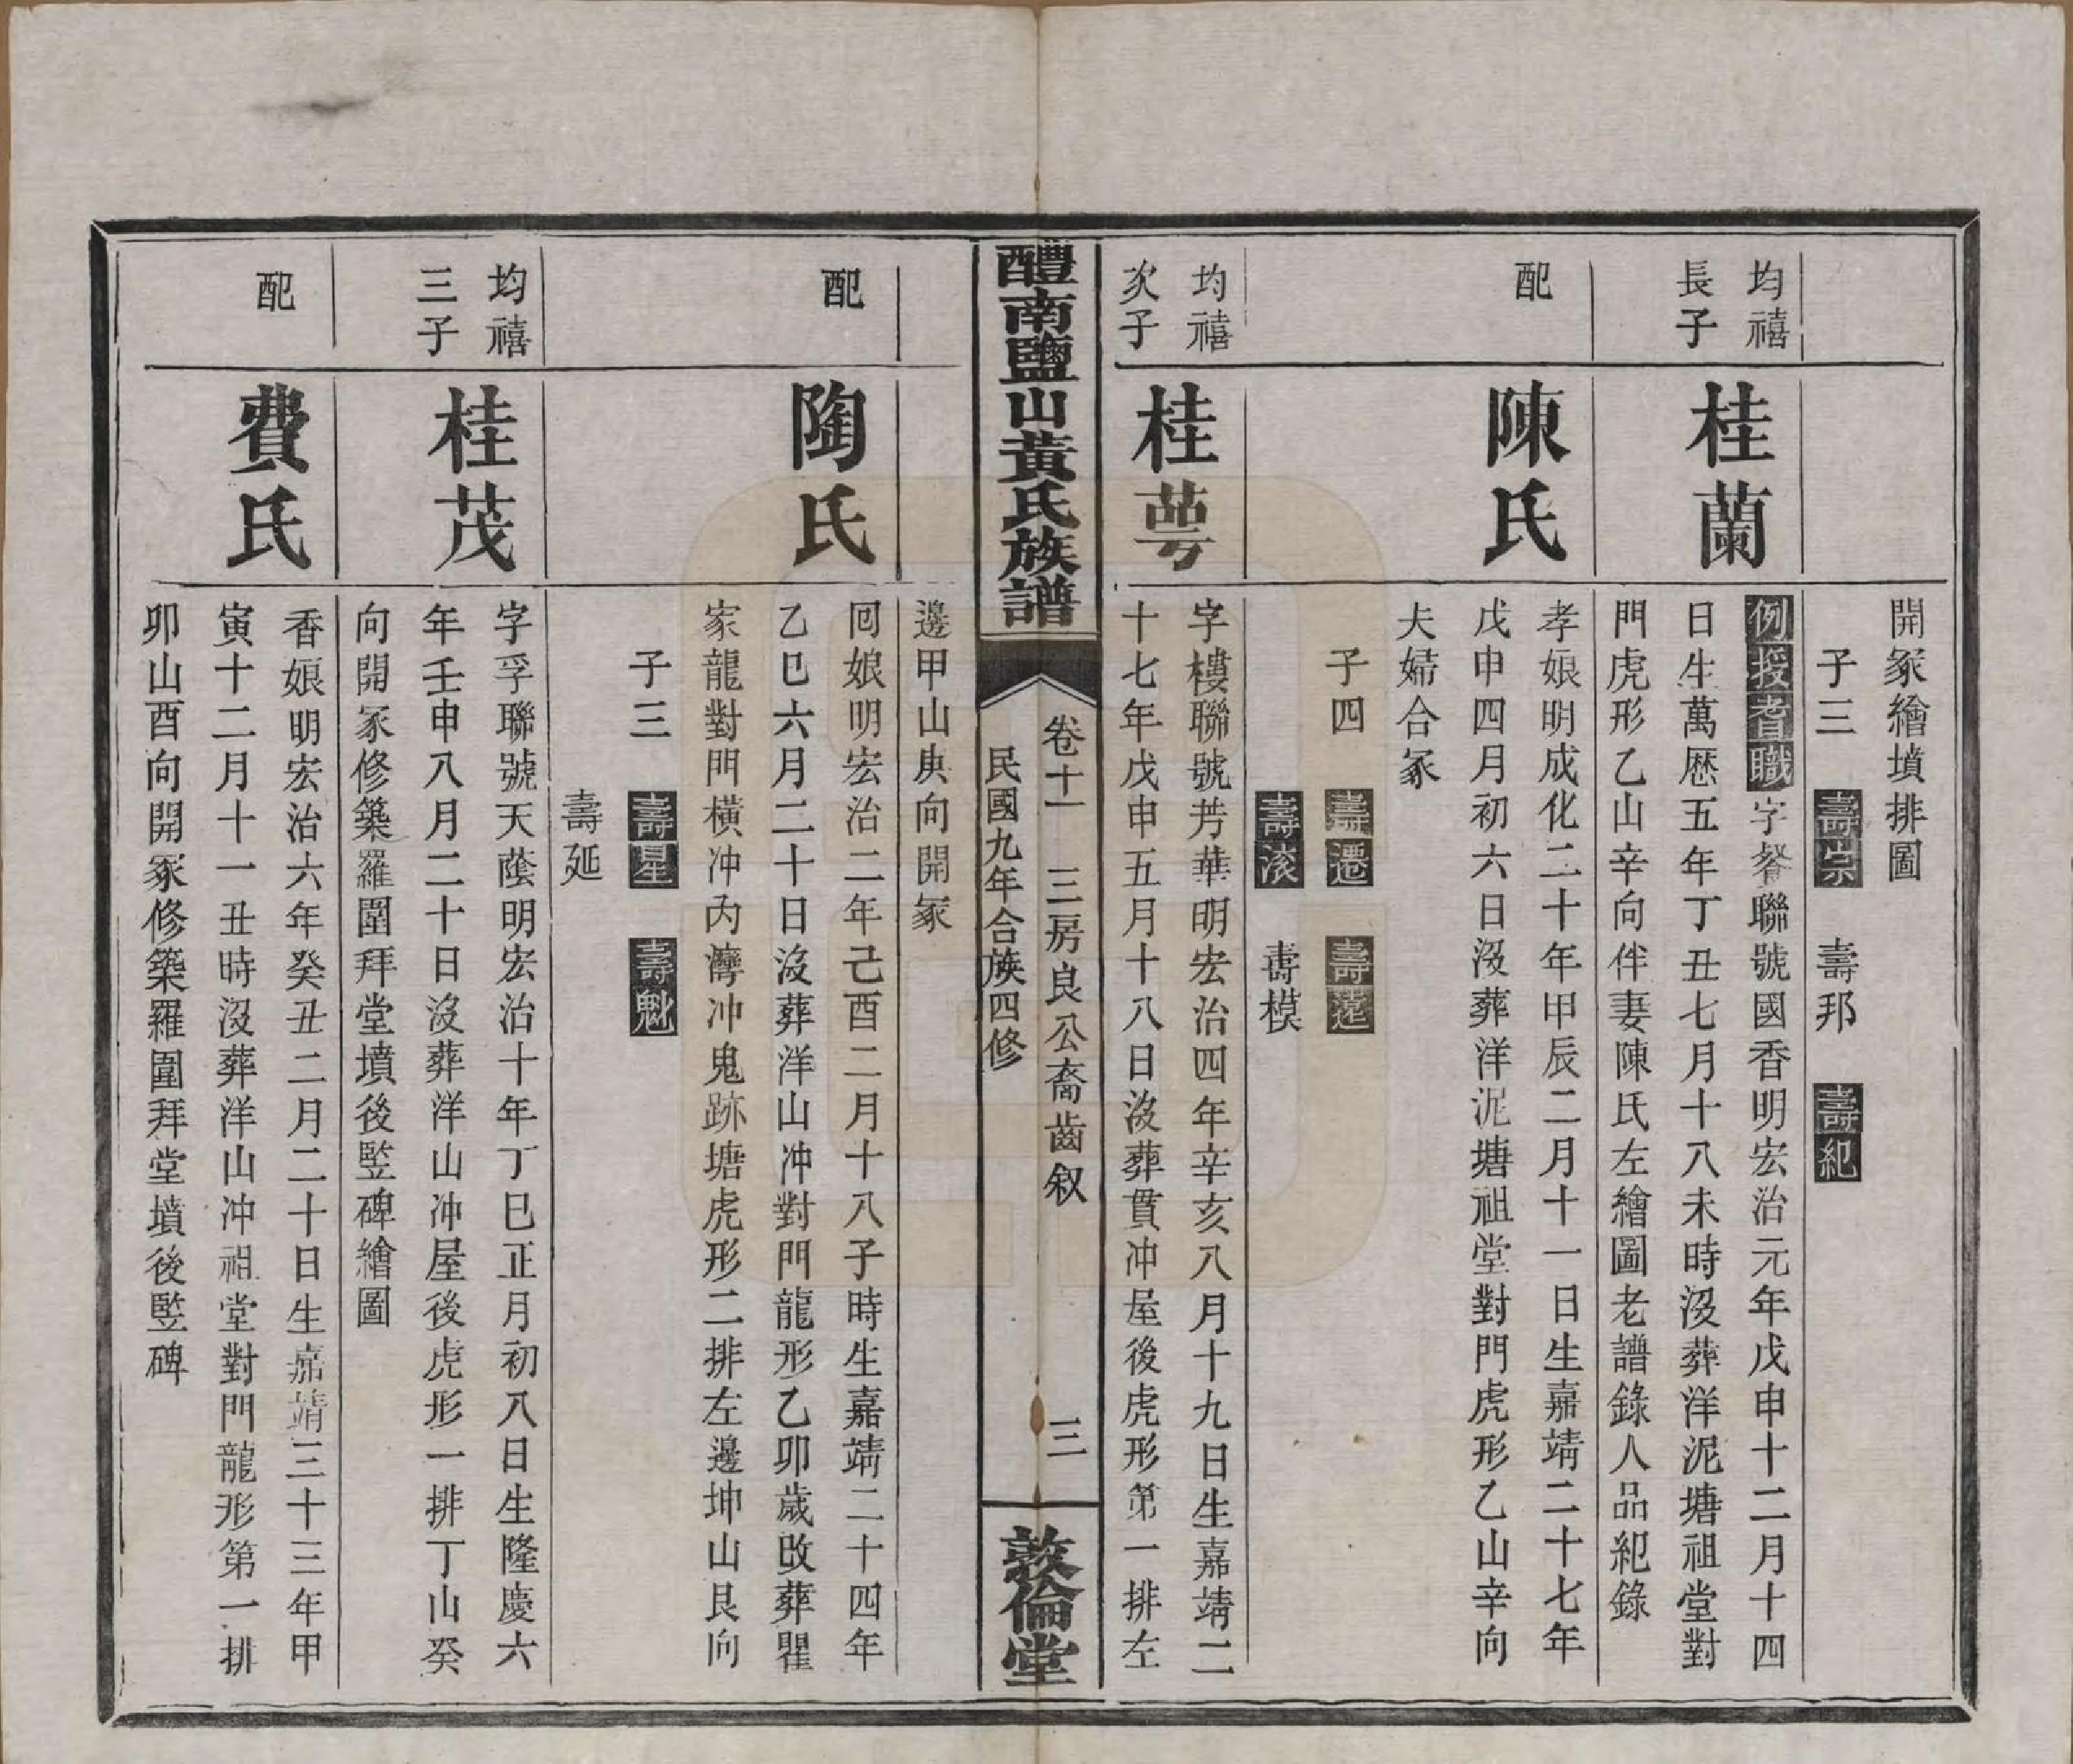 開冢繪墳排圖
子三 壽崇 壽邦 壽紀
均禧
長子
桂蘭
例授耆職字馨聯號國香明宏治元年戊申十二月十四
日生萬厯五年丁丑七月十八未時沒葬洋泥塘祖堂對
門虎形乙山辛向伴妻陳氏左繪圖老譜錄人品紀錄
配
陳氏
孝娘明成化二十年甲辰二月十一日生嘉靖二十七年
戊申四月初六日沒葬洋泥塘祖堂對門虎形乙山辛向
夫婦合冢
子四 壽遷 壽遠
壽滾 壽模
均禧
次子
桂萼
字樓聯號芳華明宏治四年辛亥八月十九日生嘉靖二
十七年戊申五月十八日沒葬貫冲屋後虎形第一排左
醴南鹽山黃氏族譜
卷十一 三房良公裔齒叙 三
民國九年合族四修
敦倫堂
邊甲山庚向開冢
配
陶氏
回娘明宏治二年己酉二月十八子時生嘉靖二十四年
乙巳六月二十日沒葬洋山冲對門龍形乙卯歲改葬瞿
家龍對門橫冲內灣冲鬼跡塘虎形二排左邊坤山艮向
子三 壽星 壽魁
壽延
均禧
三子
桂茂
字孚聯號天蔭明宏治十年丁巳正月初八日生隆慶六
年壬申八月二十日沒葬洋山冲屋後虎形一排丁山癸
向開冢修築羅圍拜堂墳後竪碑繪圖
配
費氏
香娘明宏治六年癸丑二月二十日生嘉靖三十三年甲
寅十二月十一丑時沒葬洋山冲祖堂對門龍形第一排
卯山酉向開冢修築羅圍拜堂墳後竪碑